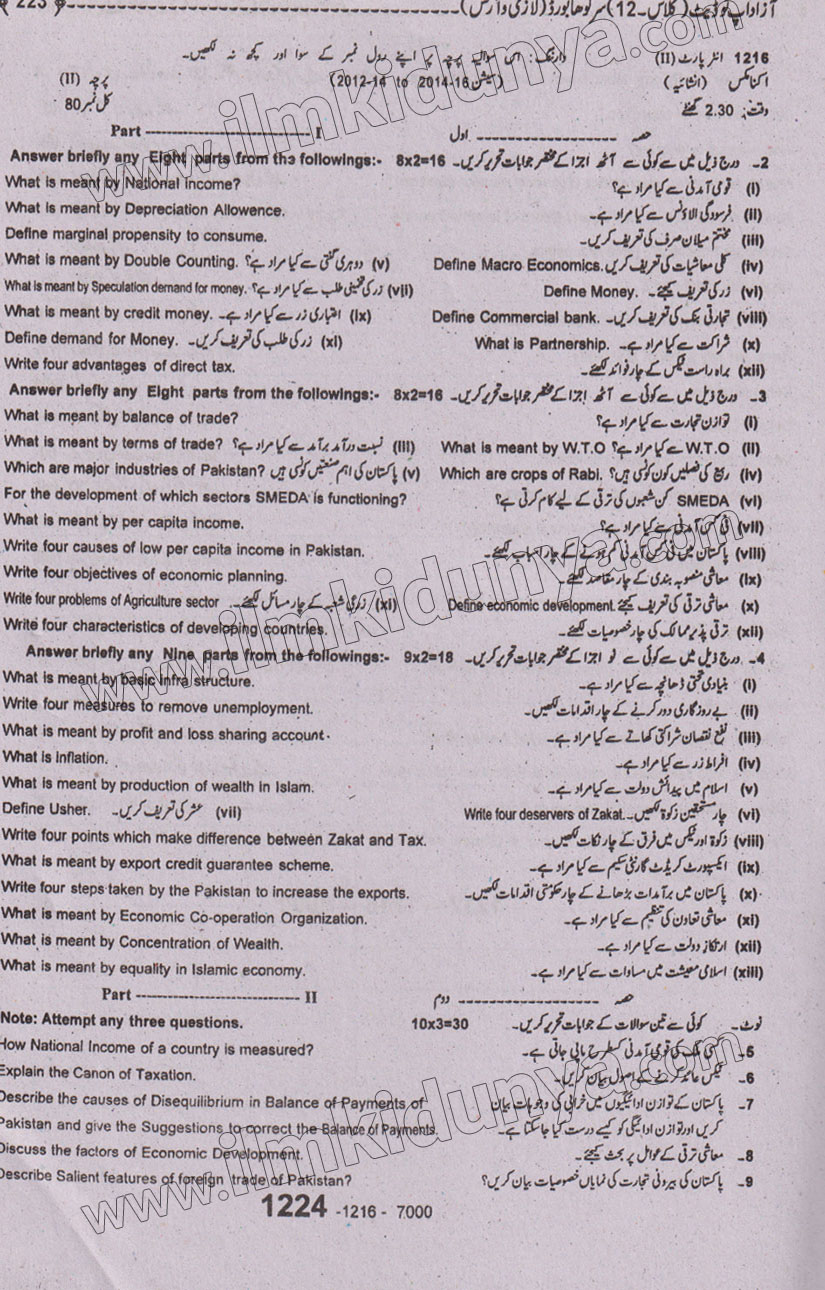 ﴿ 223 ﴾ آزاد اپ ٹو ڈیٹ (کلاس۔12) سرگودھا بورڈ
1216 انٹر پارٹ (II) وارننگ: اس سوالیہ پرچہ پر اپنے رول نمبر کے سوا اور کچھ نہ لکھیں۔
اکنامکس (انشائیہ) (سیشن 2012-14 to 2014-16) پرچہ (II)
وقت: 2.30 گھنٹے کل نمبر 80
Part ---------------------------- I حصہ -------------------- اول
Answer briefly any Eight parts from the followings:- 8x2=16 2۔ درج ذیل میں سے کوئی سے آٹھ اجزا کے مختصر جوابات تحریر کریں۔
What is meant by National Income? (i) قومی آمدنی سے کیا مراد ہے؟
What is meant by Depreciation Allowence. (ii) فرسودگی الاؤنس سے کیا مراد ہے۔
Define marginal propensity to consume. (iii) مختتم میلان صرف کی تعریف کریں۔
What is meant by Double Counting. (v) دوہری گنتی سے کیا مراد ہے؟ Define Macro Economics. (iv) کلی معاشیات کی تعریف کریں
What is meant by Speculation demand for money. (vii) زر کی تخمینی طلب سے کیا مراد ہے؟ Define Money. (vi) زر کی تعریف کیجئے۔
What is meant by credit money. (ix) اعتباری زر سے کیا مراد ہے۔ Define Commercial bank. (viii) تجارتی بنک کی تعریف کریں۔
Define demand for Money. (xi) زر کی طلب کی تعریف کریں۔ What is Partnership. (x) شراکت سے کیا مراد ہے۔
Write four advantages of direct tax. (xii) براہ راست ٹیکس کے چار فوائد لکھئے۔
Answer briefly any Eight parts from the followings:- 8x2=16 3۔ درج ذیل میں سے کوئی سے آٹھ اجزا کے مختصر جوابات تحریر کریں۔
What is meant by balance of trade? (i) توازن تجارت سے کیا مراد ہے؟
What is meant by terms of trade? (iii) نسبت درآمد برآمد سے کیا مراد ہے؟ What is meant by W.T.O (ii) W.T.O سے کیا مراد ہے؟
Which are major industries of Pakistan? (v) پاکستان کی اہم صنعتیں کونسی ہیں Which are crops of Rabi. (iv) ربیع کی فصلیں کون کونسی ہیں؟
For the development of which sectors SMEDA is functioning? (vi) SMEDA کن شعبوں کی ترقی کے لیے کام کرتی ہے؟
What is meant by per capita income. (vii) فی کس آمدنی سے کیا مراد ہے؟
Write four causes of low per capita income in Pakistan. (viii) پاکستان میں فی کس آمدنی کم ہونے کے چار اسباب لکھئے۔
Write four objectives of economic planning. (ix) معاشی منصوبہ بندی کے چار مقاصد لکھئے۔
Write four problems of Agriculture sector (xi) زرعی شعبہ کے چار مسائل لکھئے۔ Define economic development. (x) معاشی ترقی کی تعریف کیجئے
Write four characteristics of developing countries. (xii) ترقی پذیر ممالک کی چار خصوصیات لکھئے۔
Answer briefly any Nine parts from the followings:- 9x2=18 4۔ درج ذیل میں سے کوئی سے نو اجزا کے مختصر جوابات تحریر کریں۔
What is meant by basic infra structure. (i) بنیادی تحتی ڈھانچہ سے کیا مراد ہے۔
Write four measures to remove unemployment. (ii) بے روزگاری دور کرنے کے چار اقدامات لکھیں۔
What is meant by profit and loss sharing account. (iii) نفع نقصان شراکتی کھاتے سے کیا مراد ہے۔
What is Inflation. (iv) افراط زر سے کیا مراد ہے۔
What is meant by production of wealth in Islam. (v) اسلام میں پیدائش دولت سے کیا مراد ہے۔
Define Usher. (vii) عشر کی تعریف کریں۔ Write four deservers of Zakat. (vi) چار مستحقین زکوٰۃ لکھیں۔
Write four points which make difference between Zakat and Tax. (viii) زکوٰۃ اور ٹیکس میں فرق کے چار نکات لکھیں۔
What is meant by export credit guarantee scheme. (ix) ایکسپورٹ کریڈٹ گارنٹی سکیم سے کیا مراد ہے۔
Write four steps taken by the Pakistan to increase the exports. (x) پاکستان میں برآمدات بڑھانے کے چار حکومتی اقدامات لکھیں۔
What is meant by Economic Co-operation Organization. (xi) معاشی تعاون کی تنظیم سے کیا مراد ہے۔
What is meant by Concentration of Wealth. (xii) ارتکاز دولت سے کیا مراد ہے۔
What is meant by equality in Islamic economy. (xiii) اسلامی معیشت میں مساوات سے کیا مراد ہے۔
Part ---------------------------- II حصہ -------------------- دوم
Note: Attempt any three questions. 10x3=30 نوٹ۔ کوئی سے تین سوالات کے جوابات تحریر کریں۔
How National Income of a country is measured? 5۔ کسی ملک کی قومی آمدنی کسطرح ماپی جاتی ہے۔
Explain the Canon of Taxation. 6۔ ٹیکس عائد کرنے کے اصول بیان کریں۔
Describe the causes of Disequilibrium in Balance of Payments of 7۔ پاکستان کے توازن ادائیگیوں میں خرابی کی وجوہات بیان
Pakistan and give the Suggestions to correct the Balance of Payments. کریں اور توازن ادائیگی کو کیسے درست کیا جا سکتا ہے۔
Discuss the factors of Economic Development. 8۔ معاشی ترقی کے عوامل پر بحث کیجئے۔
Describe Salient features of foreign trade of Pakistan? 9۔ پاکستان کی بیرونی تجارت کی نمایاں خصوصیات بیان کریں؟
1224 -1216 - 7000
www.ilmkidunya.com
www.ilmkidunya.com
www.ilmkidunya.com